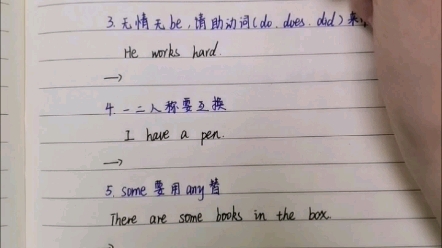 3. 无情无be, 请助动词(do. does. did)来
He works hard.
→
4. 一二人称要互换
I have a pen.
→
5. some 要用any替
There are some books in the box.